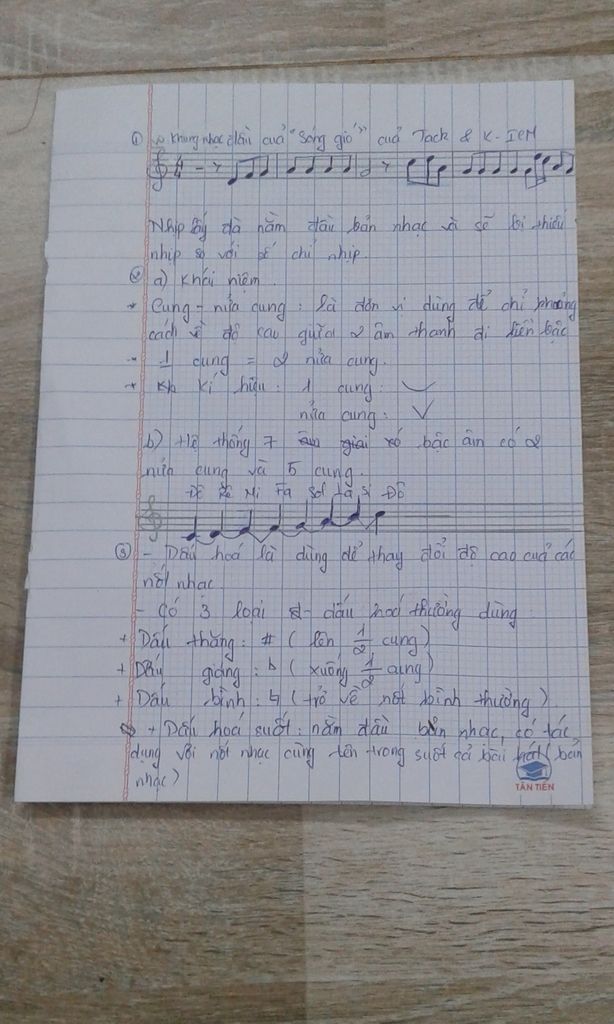 ① Khung nhạc đầu cuả "Sóng gió" cuả Jack & K-ICM
Nhịp lấy đà nằm đầu bản nhạc và sẽ bị thiếu
nhịp so với số chỉ nhịp.
② a) Khái niệm.
* Cung - nửa cung: là đơn vị dùng để chỉ khoảng
cách về độ cao giữa 2 âm thanh đi liền bậc
1 cung = 2 nửa cung.
* Kh kí hiệu: 1 cung:
nửa cung: V
b) Hệ thống 7 bậc âm có 2
nửa cung và 5 cung.
Đồ Rê Mi Fa Sol La Si Đô
③ - Dấu hoá là dùng để thay đổi độ cao cuả các
nốt nhạc
- Có 3 loại dấu hoá thường dùng
+ Dấu thăng: # (lên 1/2 cung)
+ Dấu giáng: ♭ (xuống 1/2 cung)
+ Dấu bình: ♮ (trở về nốt bình thường)
+ Dấu hoá suốt: nằm đầu bản nhạc, có tác
dụng với nốt nhạc cùng tên trong suốt cả bài hát (bản
nhạc)
TÂN TIẾN